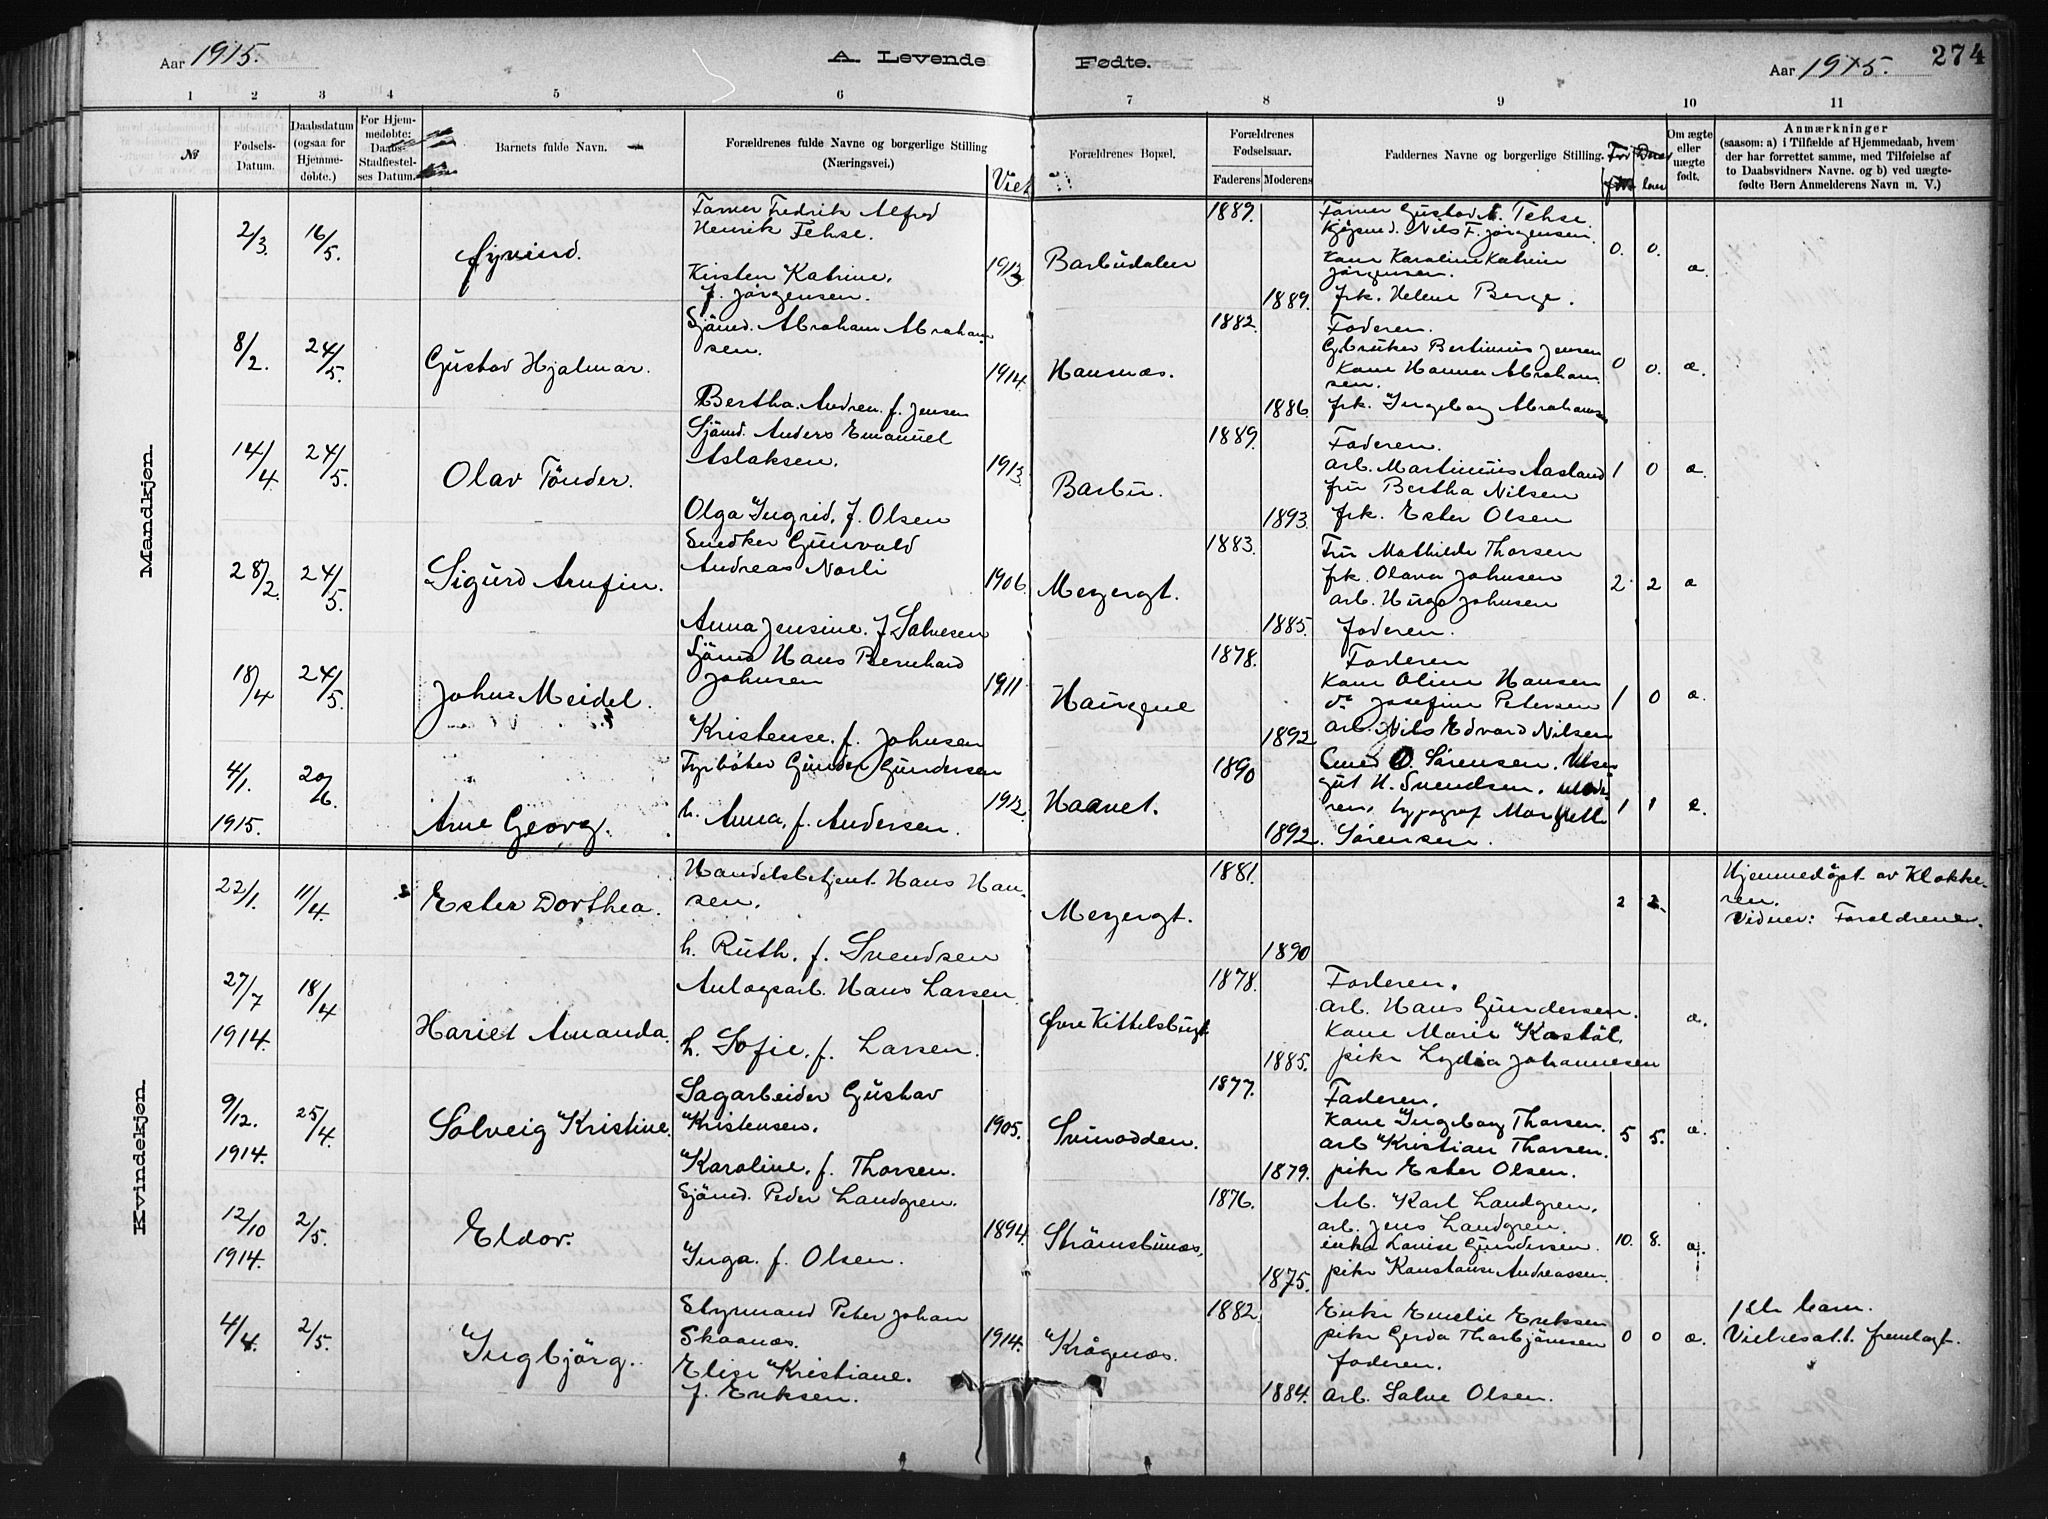 Aar 1915.
A. Levende
Fødte.
Aar 1915.
274
1 2 3 4 5 6 7 8 9 10 11
№
Fødsels-
Datum.
Daabsdatum
(ogsaa for
Hjemme-
døbte.)
For Hjem-
medøbte:
Daabs-
Stadfæstel-
ses Datum.
Barnets fulde Navn.
Forældrenes fulde Navne og borgerlige Stilling
(Næringsvei.)
Viet
Forældrenes Bopæl.
Forældrenes
Fødselsaar.
Faderens Moderens
Faddernes Navne og borgerlige Stilling.
Om ægte
eller
uægte
født.
Anmærkninger
(saasom: a) i Tilfælde af Hjemmedaab, hvem
der har forrettet samme, med Tilføielse af
to Daabsvidners Navne, og b) ved uægte-
fødte Børn Anmelderens Navn m. V.)
Mandkjøn.
2/3.
16/5.
Øyvind.
Farver Fredrik Alfred
Henrik Fehse.
Kirsten Katrine,
f. Jørgensen.
1913
Barbudalen
1889.
1889.
Farver Gustav A. Fehse
Kjøpmd. Nils F. Jørgensen.
Kone Karoline Katrine
Jørgensen.
frk. Helene Berge.
0. 0.
æ.
8/2.
24/5.
Gustav Hjalmar.
Sjømd. Abraham Abraham-
sen.
Bertha Andrea f. Jensen
1914.
Hansnæs.
1882.
1886.
Faderen.
Gbruker Bertinius Jensen
Kone Hanna Abraham-
sen.
frk. Ingeborg Abrahamsen
0 0. æ.
14/4.
24/5.
Olav Tønder.
Sjømd. Anders Emanuel
Aslaksen.
Olga Ingrid, f. Olsen
1913.
Barbu.
1889.
1893.
Faderen.
arb. Martinius Aasland
fru Bertha Nilsen
frk. Ester Olsen
1 0 æ.
28/2.
24/5.
Sigurd Arnfin.
Snedker Gunvald
Andreas Norli
Anna Jensine. f. Salvesen
1906.
Meyergt.
1883.
1885.
Fru Mathilde Thorsen
frk. Olava Johnsen
arb. Hugo Johnsen
faderen.
2 2 æ
18/4
24/5.
John Meidel.
Sjømd Hans Bernhard
Johnsen
Kristense. f. Johnsen
1911
Haugene
1878.
1892.
Faderen
Kone Oline Hansen
do Josefine Petersen
arb. Nils Edvard Nilsen
1 0 æ.
4/1.
1915.
20/6.
Arne Georg.
Fyrbøter Gunder Gundersen
h. Anna, f. Andersen.
1912.
Haavet.
1890
1892.
O. Sørensen.
gut H. Svendsen.
ren, typograf
Sørensen.
1 1 æ.
Kvindekjøn.
22/1.
11/4.
Ester Dorthea.
Handelsbetjent Hans Han-
sen.
h. Ruth, f. Svendsen
Meyergt.
1881.
1890
2 2.
Hjemmedøpt av Klokke-
ren.
Vidner: Forældrene.
27/7
1914.
18/4
Hariet Amanda.
Anlægsarb. Hans Larsen
h. Sofie, f. Larsen.
Øvre Kittelsbugt
1878.
1885.
Faderen.
arb. Hans Gundersen.
Kone Marie Kastøl,
pike Lydia Johannesen
æ.
9/12.
1914.
25/4.
Solveig Kristine.
Sagarbeider Gustav
Kristensen.
Karoline, f. Thorsen.
1905.
Svinodden.
1877.
1879.
Faderen.
Kone Ingeborg Thorsen.
arb Kristian Thorsen.
pike Ester Olsen.
5 5. æ.
12/10
1914.
2/5.
Eldor.
Sjømd. Peder Landgren.
Inga. f. Olsen.
1894.
Strømsbunæs,
1876.
1875.
Arb. Karl Landgren,
arb. Jens Landgren.
enke Lovise Gundersen.
pike Konstanse Andreassen
10. 8. æ.
4/4.
2/5.
Ingbjørg.
Styrmand Peter Johan
Skaanæs.
Elise Kristiane.
f. Eriksen.
1914.
Krøgenæs.
1882.
1884.
Enke Emelie Eriksen
pike Gerda Thorbjørnsen
faderen.
arb. Salve Olsen.
0 0 æ.
1ste barn.
Vielsesatt. fremlagt.